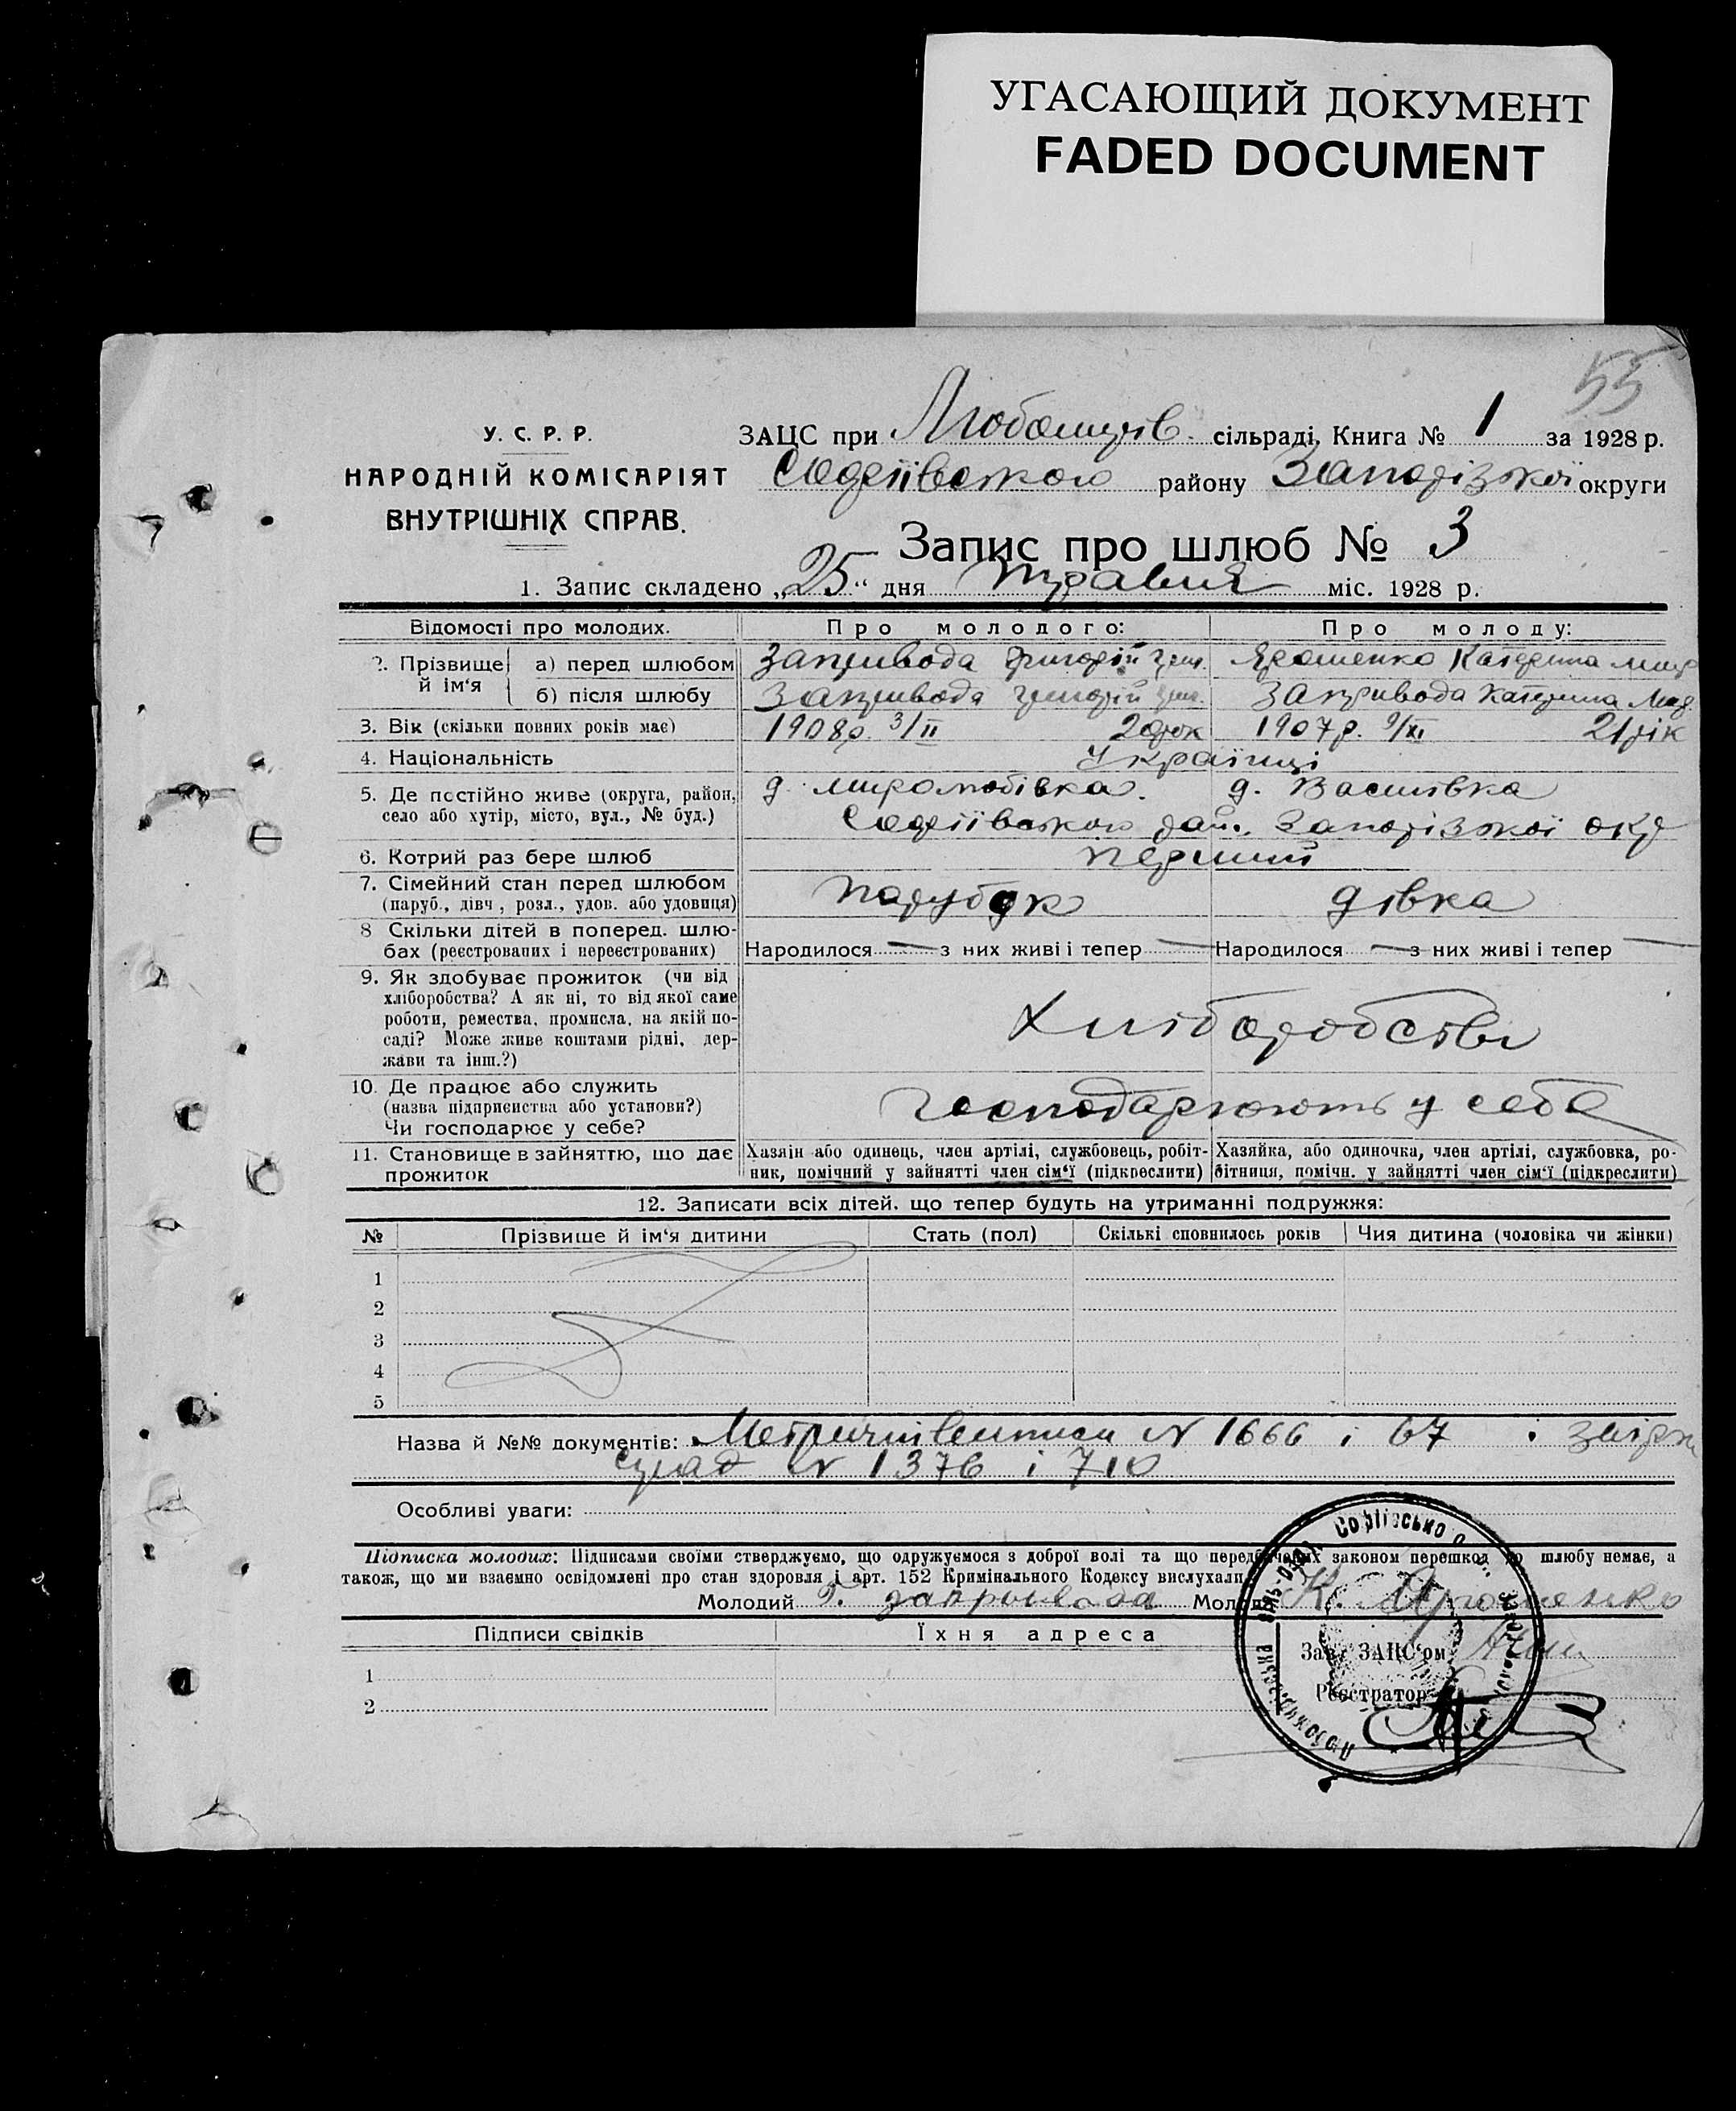 УГАСАЮЩИЙ ДОКУМЕНТ
FADED DOCUMENT
55
У. С. Р. Р.
НАРОДНІЙ КОМІСАРІЯТ
ВНУТРІШНІХ СПРАВ.
ЗАЦС при сільраді, Книга № 1 за 1928 р.
Софіївського району Запорізької округи
Запис про шлюб № 3
1. Запис складено „25“ дня травня міс. 1928 р.
Відомості про молодих. Про молодого: Про молоду:
2. Прізвище й ім‘я а) перед шлюбом Запривода Григорій Григ. Ярошенко Катерина
б) після шлюбу Запривода Григорій Григ. Запривода Катерина
3. Вік (скільки повних років має) 1908р. 3/II 20рок 1907р. 9/XI 21рік
4. Національність Українці
5. Де постійно живе (округа, район, село або хутір, місто, вул., № буд.) д. Миролюбівка. д. Василівка
Софіївського рай. Запорізької окр
6. Котрий раз бере шлюб перший
7. Сімейний стан перед шлюбом парубок дівка
(паруб., дівч., розл., удов. або удовиця)
8 Скільки дітей в поперед. шлю-
бах (реєстрованих і нереєстрованих) Народилося — з них живі і тепер — Народилося — з них живі і тепер —
9. Як здобуває прожиток (чи від
хліборобства? А як ні, то від якої саме
роботи, ремества, промисла, на якій по-
саді? Може живе коштами рідні, дер-
жави та інш.?) Хліборобство
10. Де працює або служить
(назва підприємства або установи?)
Чи господарює у себе? господарюють у себе
11. Становище в зайняттю, що дає Хазяін або одинець, член артілі, службовець, робіт- Хазяйка, або одиночка, член артілі, службовка, ро-
прожиток ник, помічний у зайнятті член сім‘ї (підкреслити) бітниця, помічн. у зайнятті член сім‘ї (підкреслити)
12. Записати всіх дітей, що тепер будуть на утриманні подружжя:
№ Прізвище й ім‘я дитини Стать (пол) Скількі сповнилось років Чия дитина (чоловіка чи жінки)
1
2
3
4
5
Назва й №№ документів: Метричні виписи N 1666 і 67 і
N 1376 і 710
Особливі уваги:
Підписка молодих: Підписами своїми стверджуємо, що одружуємося з доброї волі та що передбачених законом перешкод до шлюбу немає, а
також, що ми взаємно освідомлені про стан здоровля і арт. 152 Кримінального Кодексу вислухали.
Молодий Г. запрывода Молода К. Ярошенко
Підписи свідків Їхня адреса
Зав. ЗАЦС‘ом
Реєстратор
1
2